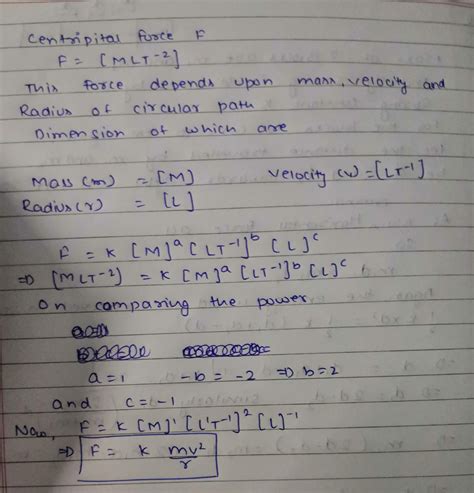 Centripital force F
F = [MLT⁻²]
This force depends upon mass, velocity and
Radius of circular path
Dimension of which are
Mass (m) = [M] Velocity (v) = [LT⁻¹]
Radius (r) = [L]
F = K [M]ᵃ [LT⁻¹]ᵇ [L]ᶜ
⇒ [MLT⁻²] = K [M]ᵃ [LT⁻¹]ᵇ [L]ᶜ
On comparing the power
a = 1 -b = -2 ⇒ b = 2
and c = -1
F = K [M]¹ [L¹T⁻¹]² [L]⁻¹
⇒ F = K mv²/r